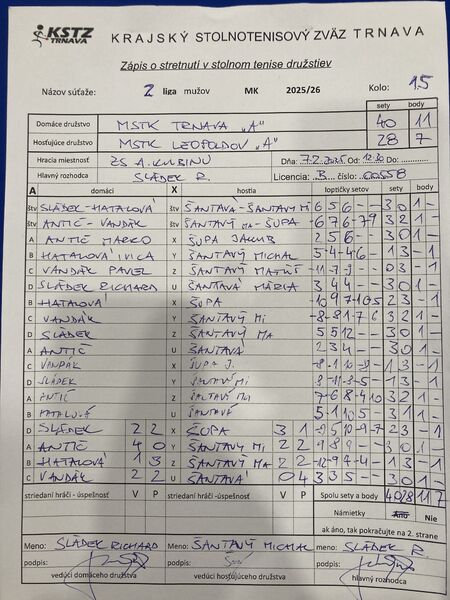 KSTZ TRNAVA KRAJSKÝ STOLNOTENISOVÝ ZVÄZ TRNAVA
Zápis o stretnutí v stolnom tenise družstiev
Názov súťaže: 2 liga mužov MK 2025/26 Kolo: 15
sety body
Domáce družstvo MSTK TRNAVA "A" 40 11
Hosťujúce družstvo MSTK LEOPOLDOV "A" 28 7
Hracia miestnosť ZŠ A. KUBINU Dňa: Od: Do:
Hlavný rozhodca SLÁDEK R. Licencia: B číslo: 00558
A domáci X hostia loptičky setov sety body
štv SLÁDEK-HATALOVÁ štv ŠANTAVÁ-ŠANTAVÝ MI 6 5 6 - - 3 0 1 -
štv ANTIČ-VANDÁK štv ŠANTAVÝ MA-ŠUPA -6 7 6 -7 9 3 2 1 -
A ANTIČ MARKO X ŠUPA JAKUB 2 5 6 - - 3 0 1 -
B HATALOVÁ IVICA Y ŠANTAVÝ MICHAL 5 -4 -4 -6 - 1 3 - 1
C VANDÁK PAVEL Z ŠANTAVÝ MATÚŠ - - 0 3 - 1
D SLÁDEK RICHARD U ŠANTAVÁ MÁRIA 3 4 4 - - 3 0 1 -
B HATALOVÁ X ŠUPA 2 3 - 1
C VANDÁK Y ŠANTAVÝ MI 3 2 1 -
D SLÁDEK Z ŠANTAVÝ MA 5 5 12 - - 3 0 1 -
A ANTIČ U ŠANTAVÁ 2 3 4 - - 3 0 1 -
C VANDÁK X ŠUPA J. - 1 3 - 1
D SLÁDEK Y ŠANTAVÝ MI - 1 3 - 1
A ANTIČ Z ŠANTAVÝ MA 3 2 1 -
B HATALOVÁ U ŠANTAVÁ 3 1 1 -
D SLÁDEK 2 2 X ŠUPA 3 1 2 3 - 1
A ANTIČ 4 0 Y ŠANTAVÝ MI 2 2 9 8 9 - - 3 0 1 -
B HATALOVÁ 1 3 Z ŠANTAVÝ MA 2 2 -12 -9 7 -4 - 1 3 - 1
C VANDÁK 2 2 U ŠANTAVÁ 0 4 3 3 5 - - 3 0 1 -
striedaní hráči - úspešnosť V P striedaní hráči - úspešnosť V P Spolu sety a body 40 28 11 7
Námietky Áno Nie
ak áno, tak pokračujte na 2. strane
Meno: SLÁDEK RICHARD Meno: ŠANTAVÝ MICHAL meno: SLÁDEK R.
podpis: podpis: podpis:
vedúci domáceho družstva vedúci hosťujúceho družstva hlavný rozhodca